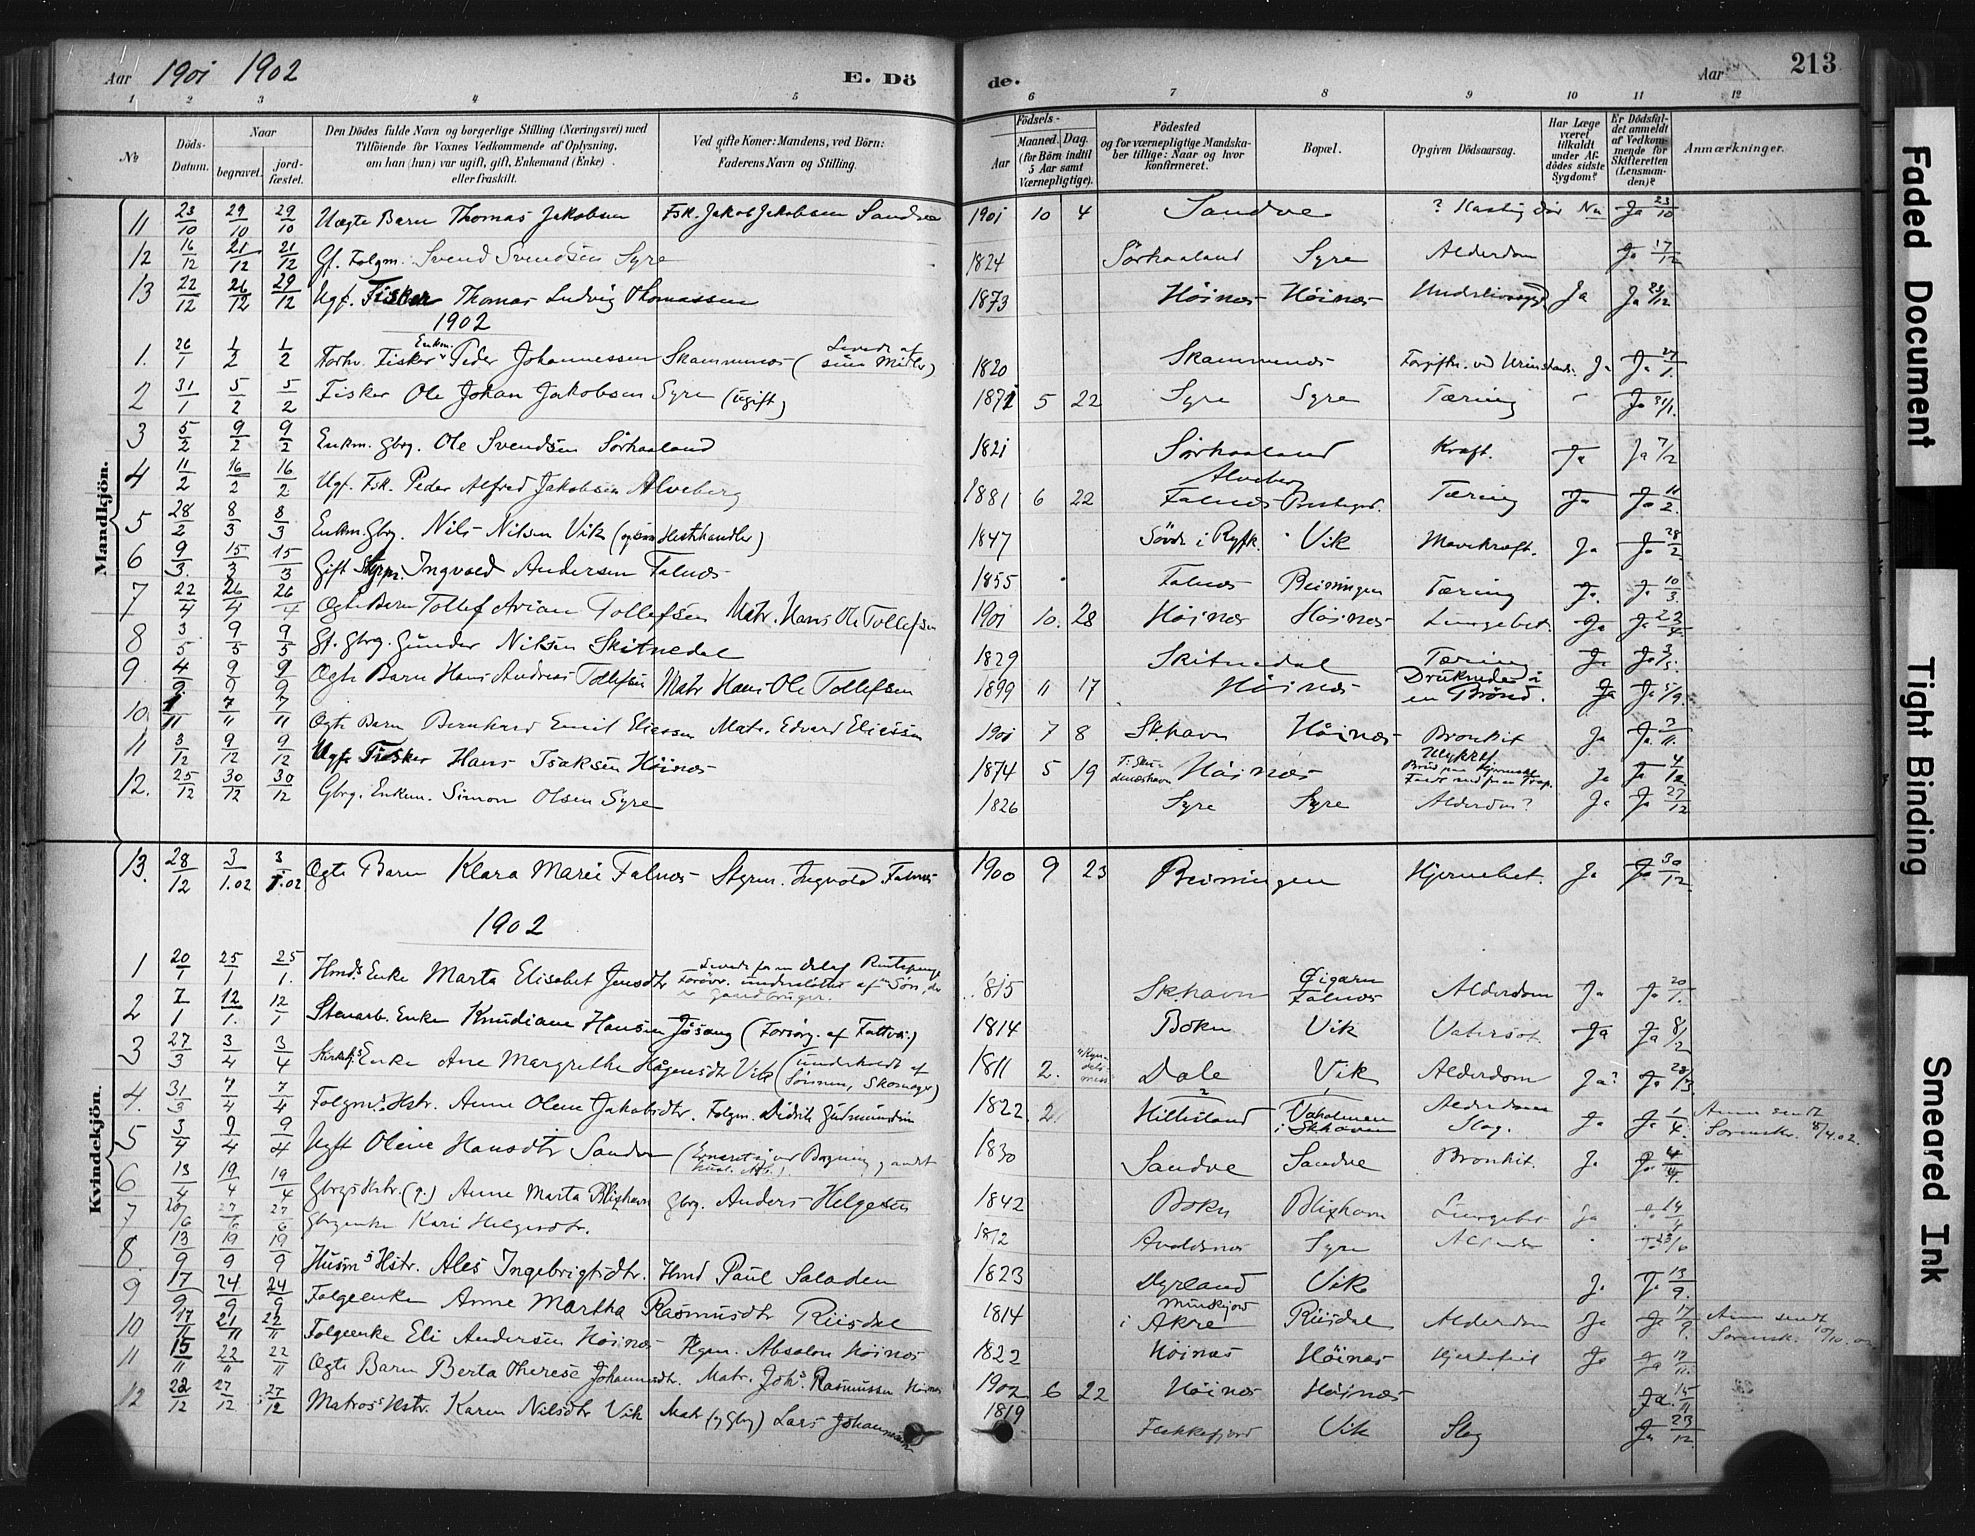 Aar 1901 1902 E. Döde. Aar 213
1 2 3 4 5 6 7 8 9 10 11 12
No
Döds-Datum.
Naar
begravet.
jord-fæstet.
Den Dödes fulde Navn og borgerlige Stilling (Næringsvei) med
Tilföiende for Voxnes Vedkommende af Oplysning,
om han (hun) var ugift, gift, Enkemand (Enke)
eller fraskilt.
Ved gifte Koner: Mandens, ved Börn:
Faderens Navn og Stilling.
Födsels-
Aar
Maaned. Dag.
(for Börn indtil
5 Aar samt
Værnepligtige).
Födested
og for værnepligtige Mandska-
ber tillige: Naar og hvor
konfirmeret.
Bopæl.
Opgiven Dödsaarsag.
Har Læge
været
tilkaldt
under Af-
dödes sidste
Sygdom?
Er Dödsfal-
det anmeldt
af Vedkom-
mende for
Skifteretten
(Lensman-
den)?
Anmærkninger.
Mandkjön.
11 23/10 29/10 29/10 Uægte Barn Thomas Jakobsen Fsk. Jakob Jakobsen Sandve 1901 10 4 Sandve ? Hastig död Nei Ja 23/10
12 16/12 21/12 21/12 Gf. Folgm. Svend Svendsen Syre 1824 Sörhaaland Syre Alderdom Ja 17/12
13 22/12 26/12 29/12 Ugf. Fisker Thomas Ludvig Thomassen 1873 Höinæs Höinæs Ja Ja 23/12
1902
1. 26/1 1/2 1/2 Forhv. Fisker Enkm. Peder Johannessen Skammenæs (Levede af sine Midler) 1820 Skammenæs Forgiftn. ved Ja Ja 27/1.
2 31/1 5/2 5/2 Fisker Ole Johan Jakobsen Syre (ugift) 1871 5 22 Syre Syre Tæring Ja 31/1.
3 5/2 9/2 9/2 Enkm. Gbrg. Ole Svendsen Sörhaaland 1821 Sörhaaland Kræft. Ja Ja 7/2
4 11/2 16/2 16/2 Ugf. Fsk. Peder Alfred Jakobsen Alveberg 1881 6 22 Falnæs Alveberg Prestegrd. Tæring Ja Ja 11/2.
5 28/2 8/3 8/3 Enkm. Gbrg. Nils Nilsen Vik (ogsaa Hestehandler) 1847 Sövde i Ryfk. Vik Mavekræft. Ja Ja 28/2
6 9/3. 15/3 15/3 Gift Styrm. Ingvald Andersen Falnæs 1855 Falnæs Beiningen Tæring Ja. Ja 10/3.
7 22/4 26/4 26/4 Ogte Barn Tollef Arian Tollefsen Matr. Hans Ole Tollefsen 1901 10. 28 Höinæs Höinæs Lungebet. Ja Ja 22/4.
8 3/5 9/5 9/5 Gf. Gbrg. Gunder Nilsen Skitnedal 1829 Skitnedal Tæring Ja Ja 3/5.
9. 4/9. 9/9 9/9 Ogte Barn Hans Andreas Tollefsen Matr Hans Ole Tollefsen 1899 11 17 Höinæs Druknede i en Brönd. Ja Ja 5/9.
10 1/11 7/11 7/11 Ogte Barn Bernhard Emil Eliessen Matr. Edvard Eliessen 1901 7 8 Skhavn Höinæs Bronkit Ja Ja 3/11.
11 3/12 9/12 9/12 Ugf. Fisker Hans Isaksen Höinæs 1874 5 19 Höinæs Ja Ja 4/12
12. 25/12 30/12 30/12 Gbrg. Enkem. Simon Olsen Syre 1826 Syre Syre Alderdom? Ja Ja 27/12
Kvindekjön.
13. 28/12 3/1.02 3/1.02 Ogte Barn Klara Marie Falnæs Styrm. Ingvald Falnæs 1900 9 23 Beiningen Hjernebet. Ja Ja 30/12
1902
1 20/1 25/1 25/1. Hmds Enke Marta Elisabet Jensdtr 1815 Skhavn Falnæs Alderdom Ja Ja 20/1.
2 7/1 12/1. 12/1 Stenarb. Enke Knudiane Hansen Jösang (Forsörg. af Fattigv.) 1814 Bokn Vik Vatersot. Ja Ja 8/2
3 27/3 3/4 3/4 Enke Ane Margrethe Hågensdtr Vik (underholdt af Sönnen, Skomager) 1811 2. Dale Vik Alderdom Ja? Ja 28/3
4. 31/3 7/4 7/4 Folgms. Hstr. Anne Olene Jakobsdtr. Folgm. Didrik Gudmundsen 1822 2 Hillisland Vaholmen i Skhavn Alderdom Slag. Ja Ja 1/4. Anm. sendt Sorenskr. 8/4.02.
5 3/4 9/4 9/4 Ugft Oline Hansdtr Sandve 1830 Sandve Sandve Bronkit. Ja Ja 4/4.
6 13/4 19/4 19/4 Gbrgs Hstr. (g.) Anne Marta Blixhavn Gbrg. Anders Helgesen 1842 Bokn Blixhavn Lungebet Ja Ja 14/4
7 20/6 27/6 27/6 Gbrgenke Kari Helgesdtr. 1812 Avaldsnes Syre Ja 23/6
8. 13/9 19/9 19/9 Husms Hstr. Ales Ingebrigtsdtr. Hmd Paul Saladen 1823 Dyrland Vik Ja Ja 13/9.
9 17/9 24/9 24/9 Folgeenke Anne Martha Rasmusdtr Riisdal 1814 i Akre Riisdal Alderdom Ja Ja 17/9. Anm sendt Sorensk. 10/10. 02
10 17/11 21/11 22/11 Folgeenke Eli Andersen Höinæs Flgm. Absalon Höinæs 1822 Höinæs Höinæs Hjertefeil Ja Ja 17/11.
11 15/11 22/11 22/11 Ogte Barn Berta Therese Johannesdtr. Matr. Johs. Rasmussen Höinæs 1902 6 22 Höinæs Höinæs Ja. 15/11
12 22/12 27/12 27/12 Matros' Hstr. Karen Nilsdtr Vik Matr (g Gbrg) Lars Johannessen 1819 Flekkefjord Vik Slag Ja 23/12
Faded Document
Tight Binding
Smeared Ink